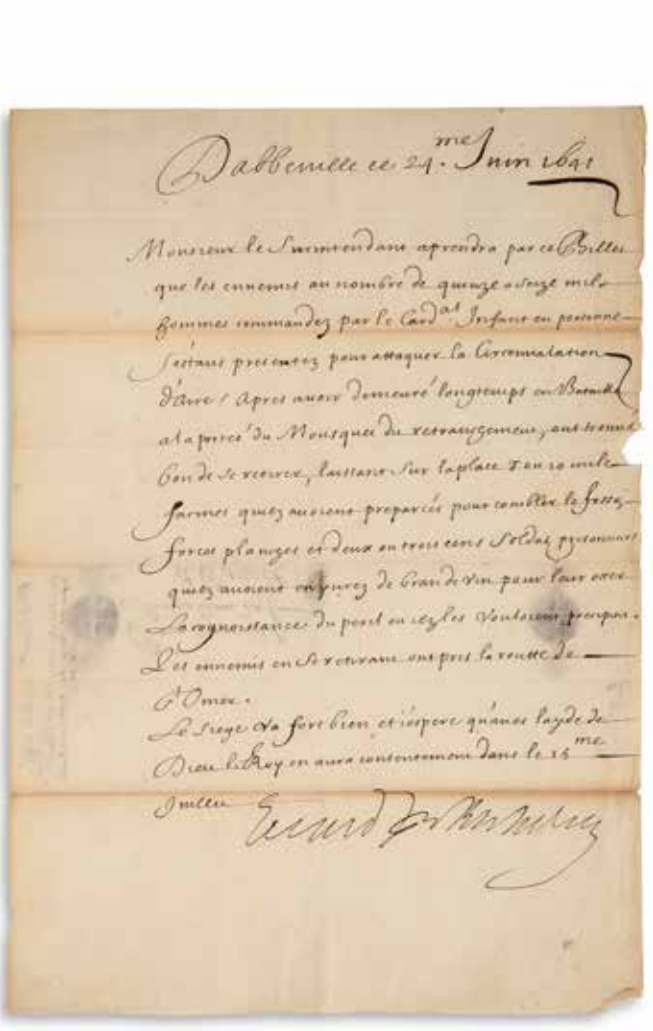 Dabbeville ce 24.me Juin 1641
Monsieur le Surintendant aprendra par ce Billet
que les ennemis au nombre de quinze a seize mil
hommes commandez par le Card.al Infant en personne
s'estans presentez pour attaquer la Circonualation
d'Aire, Apres auoir demeuré longtemps en Bataille
a la porteé du Mousquet du retranchement, ont trouué
bon de se retirer, laissans sur la place ou 10 mile
quilz auoient preparées pour combler le fossez
forces planches et deux ou trois cens Soldaz
quilz auoient enyurez de brandeuin pour leur oster
La cognoissance du peril ou ilz les vouloient
Les ennemis en se retirant ont pris la routte de
St Omer.
Le Siege va fort bien et i'espere qu'auec l'ayde de
Dieu le Roy en aura contentement dans le 15me
Juillet